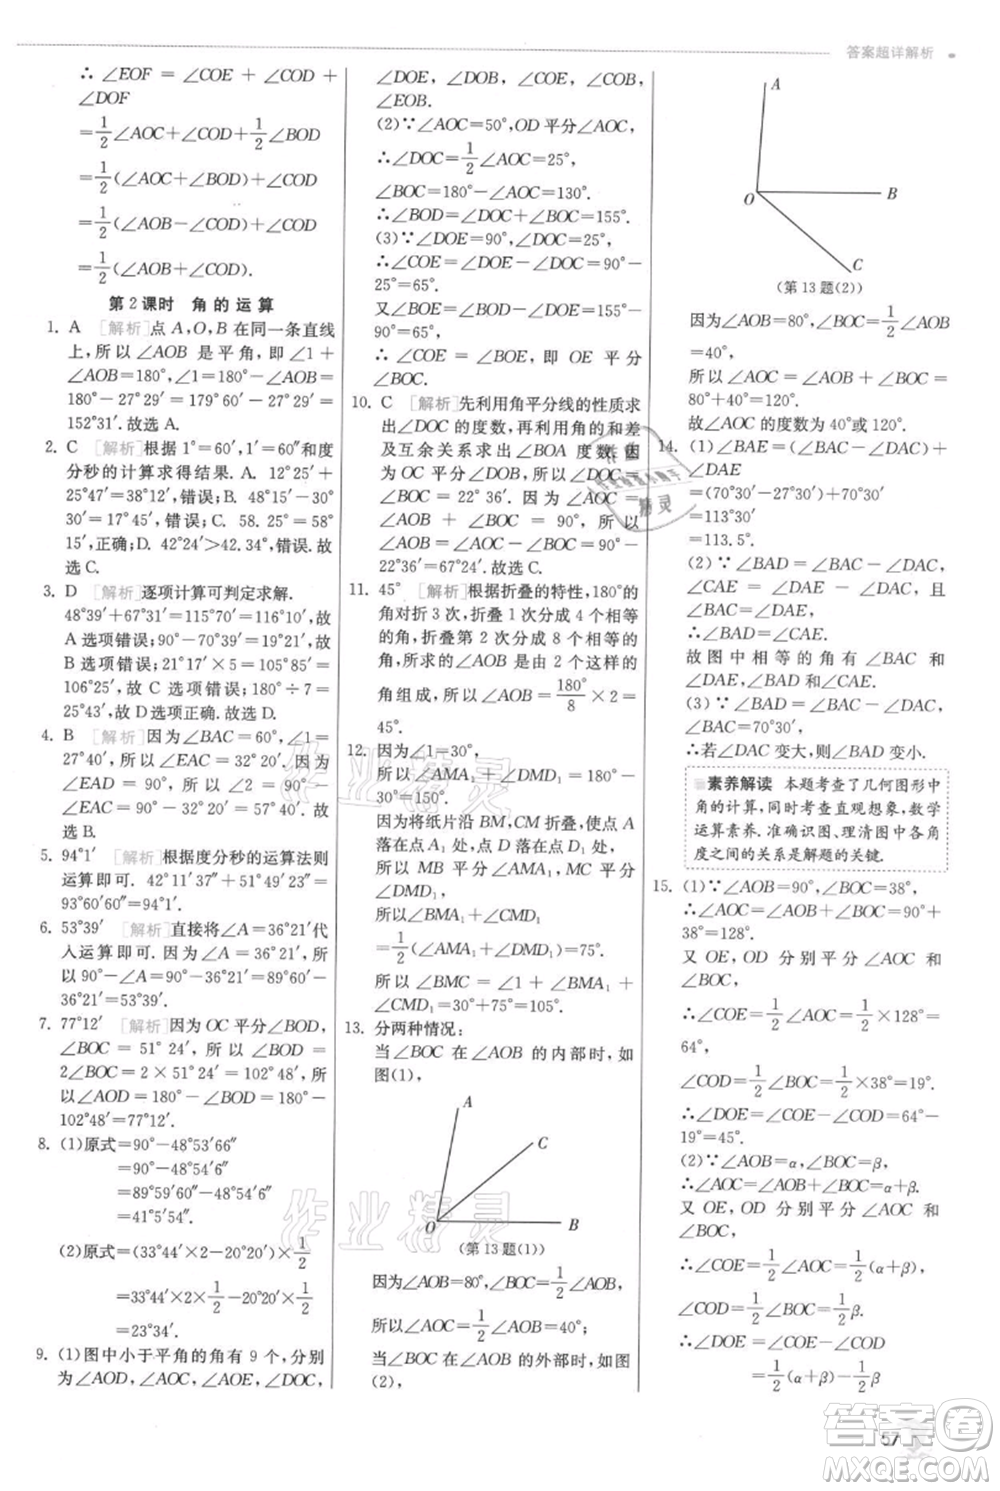 答案超详解析
∴ ∠EOF = ∠COE + ∠COD +
∠DOF
=1/2∠AOC+∠COD+1/2∠BOD
=1/2(∠AOC+∠BOD)+∠COD
=1/2(∠AOB-∠COD)+∠COD
=1/2(∠AOB+∠COD).
第2课时 角的运算
1. A [解析]点 A,O,B 在同一条直线
上,所以∠AOB 是平角,即∠1+
∠AOB=180°,∠1=180°-∠AOB=
180°-27°29′=179°60′-27°29′=
152°31′.故选 A.
2. C [解析]根据 1°=60′,1′=60″和度
分秒的计算求得结果. A. 12°25′+
25°47′=38°12′,错误;B. 48°15′-30°
30′=17°45′,错误;C. 58. 25°=58°
15′,正确;D. 42°24′>42. 34°,错误. 故
选 C.
3. D [解析]逐项计算可判定求解.
48°39′+67°31′=115°70′=116°10′,故
A 选项错误;90°-70°39′=19°21′,故
B 选项错误;21°17′×5=105°85′=
106°25′,故 C 选项错误;180°÷7=
25°43′,故 D选项正确.故选 D.
4. B [解析]因为∠BAC=60°,∠1=
27°40′,所以∠EAC=32°20′,因为
∠EAD = 90°,所以∠2 = 90° -
∠EAC=90°-32°20′=57°40′. 故
选 B.
5. 94°1′ [解析]根据度分秒的运算法则
运算即可. 42°11′+51°50′=93°61′=
93°60′60″=94°1′.
6. 53°39′ [解析]直接将∠A=36°21′代
入运算即可. 因为∠A=36°21′,所以
90°-∠A=90°-36°21′=89°60′-
36°21′=53°39′.
7. 77°12′ [解析]因为 OC 平分∠BOD,
∠BOC = 51°24′,所以∠BOD =
2∠BOC=2×51°24′=102°48′,所
以∠AOD=180°-∠BOD=180°-
102°48′=77°12′.
8. (1)原式=90°-48°53′66″
=90°-48°54′6″
=89°59′60″-48°54′6″
=41°5′54″.
(2)原式=(33°44′×2-20°20′)×1/2
=33°44′×2×1/2-20°20′×1/2
=23°34′.
9. (1)图中小于平角的角有 9 个,分别
为∠AOD,∠AOC,∠AOE,∠DOC,
∠DOE,∠DOB,∠COE,∠COB,
∠EOB.
(2)∵∠AOC=50°,OD 平分∠AOC,
∴∠DOC=1/2∠AOC=25°,
∠BOC=180°-∠AOC=130°.
∴∠BOD=∠DOC+∠BOC=155°.
(3)∵∠DOE=90°,∠DOC=25°,
∴∠COE=∠DOE-∠DOC=90°-
25°=65°.
又∵∠BOE=∠BOD-∠DOE=
155°-90°=65°,
∴∠COE=∠BOE,即 OE 平分
∠BOC.
10. C [解析]先利用角平分线的性质求
出∠DOC 的度数,再利用角的和差
及互余关系求出∠BOA 度数. 因
为 OC 平分∠DOB,所以∠DOC=
∠BOC=22°36′. 因为∠AOC=
∠AOB + ∠BOC = 90°,所以
∠AOB=90°-∠BOC=90°-
22°36′=67°24′.故选 C.
11. 45° [解析]根据折叠的特性,180°的
角对折 3 次,折叠 1 次分成 4 个相等
的角,折叠第 2 次分成 8 个相等的
角,所求的∠AOB 是由 2 个这样的
角组成,所以∠AOB=180°/8×2=
45°.
12. 因为∠1=30°,
所以∠AMA₁+∠DMD₁=180°-
30°=150°.
因为将纸片沿 BM,CM 折叠,使点 A
落在点 A₁ 处,点 D 落在点 D₁ 处,
所以 MB 平分∠AMA₁,MC 平分
∠DMD₁.
所以∠BMA₁+∠CMD₁
=1/2(∠AMA₁+∠DMD₁)=75°.
所以∠BMC=∠1+∠BMA₁+
∠CMD₁=30°+75°=105°.
13. 分两种情况:
当∠BOC 在∠AOB 的内部时,如
图(1),
A
C
O
B
(第 13 题(1))
因为∠AOB=80°,∠BOC=1/2∠AOB,
所以∠AOC=1/2∠AOB=40°;
当∠BOC 在∠AOB 的外部时,如图
(2),
A
O
B
C
(第 13 题(2))
因为∠AOB=80°,∠BOC=1/2∠AOB
=40°,
所以∠AOC=∠AOB+∠BOC=
80°+40°=120°.
故∠AOC 的度数为 40°或 120°.
14. (1)∠BAE=(∠BAC-∠DAC)+
∠DAE
=(70°30′-27°)+70°30′
=113°30′
=113.5°.
(2)∵∠BAD=∠BAC-∠DAC,
∠CAE = ∠DAE - ∠DAC,
∠BAC=∠DAE,
∴∠BAD=∠CAE.
故图中相等的角有∠BAC 和
∠DAE,∠BAD 和∠CAE.
(3)∵∠BAC=∠BAD+∠DAC,
∠BAC=70°30′,
∴若∠DAC 变大,则∠BAD 变小.
素养解读 本题考查了几何图形中
角的计算,同时考查直观想象,数学
运算素养.准确识图、理清图中各角
度之间的关系是解题的关键.
15. (1)∵∠AOB=90°,∠BOC=38°,
∴∠AOC=∠AOB+∠BOC=90°+
38°=128°.
又 OE,OD 分别平分∠AOC 和
∠BOC,
∴∠COE=1/2∠AOC=1/2×128°=
64°,
∠COD=1/2∠BOC=1/2×38°=19°.
∴∠DOE=∠COE-∠COD=64°-
19°=45°.
(2)∵∠AOB=α,∠BOC=β,
∴∠AOC=∠AOB+∠BOC=α+β.
又 OE,OD 分别平分∠AOC 和
∠BOC,
∴∠COE=1/2∠AOC=1/2(α+β),
∠COD=1/2∠BOC=1/2β.
∴∠DOE=∠COE-∠COD
=1/2(α+β)-1/2β=1/2α.
57
作业精灵
作业精灵
答案圈
MXQE.COM